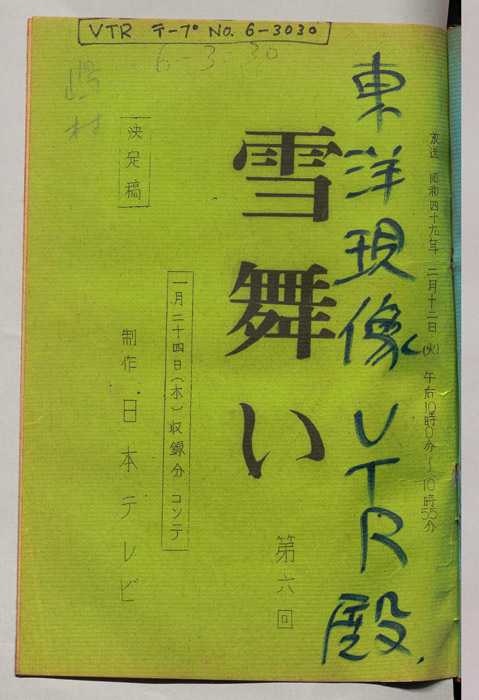 VTR テープ No. 6-3030
6-3.30
放送 昭和四十九年 二月十二日(火) 午后10時0分〜10時55分
東洋現像 VTR殿
雪舞い
第六回
一月二十四日(木)収録分 コンテ
決定稿
制作 日本テレビ